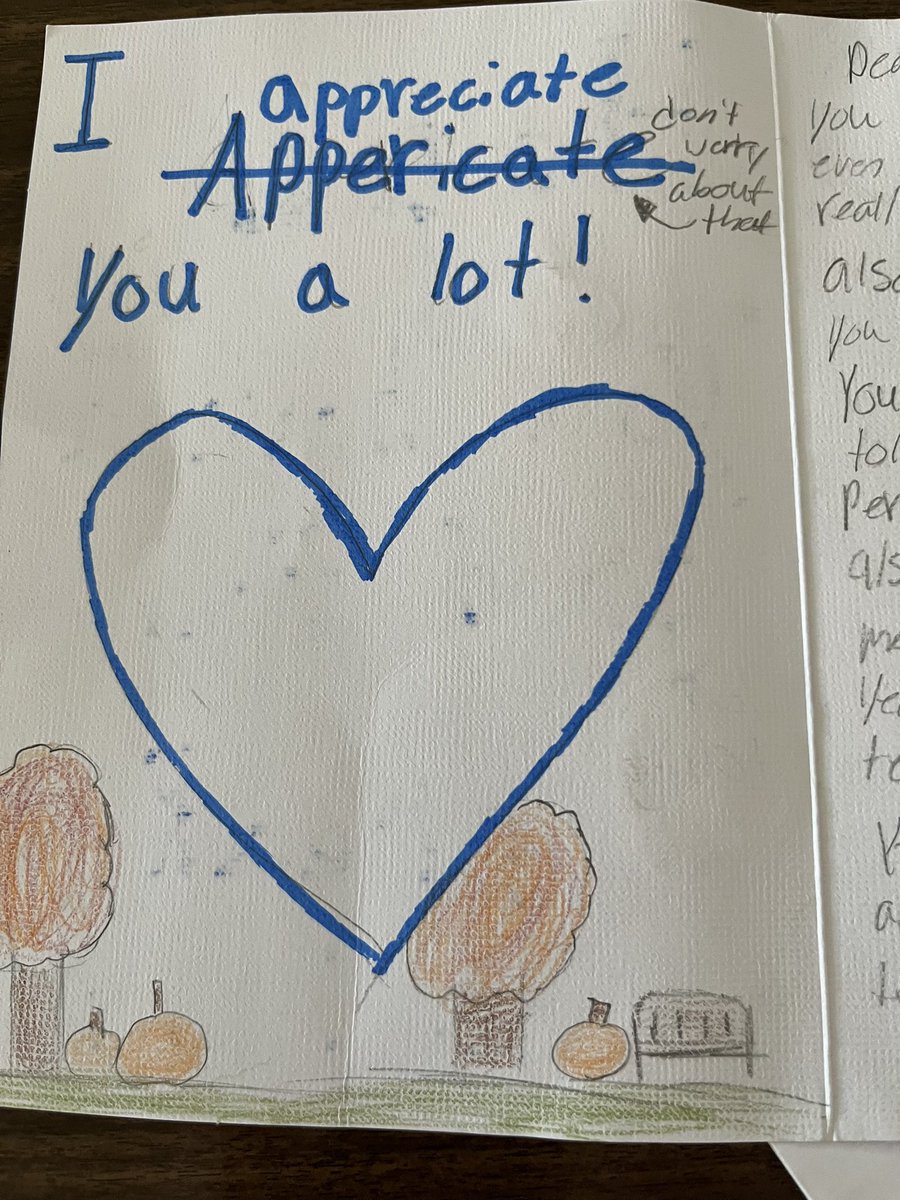 I appreciate
Appericate
don't
worry
about
that
You a lot!
Dea
you
even
real
also
you
You
tol
Per
als